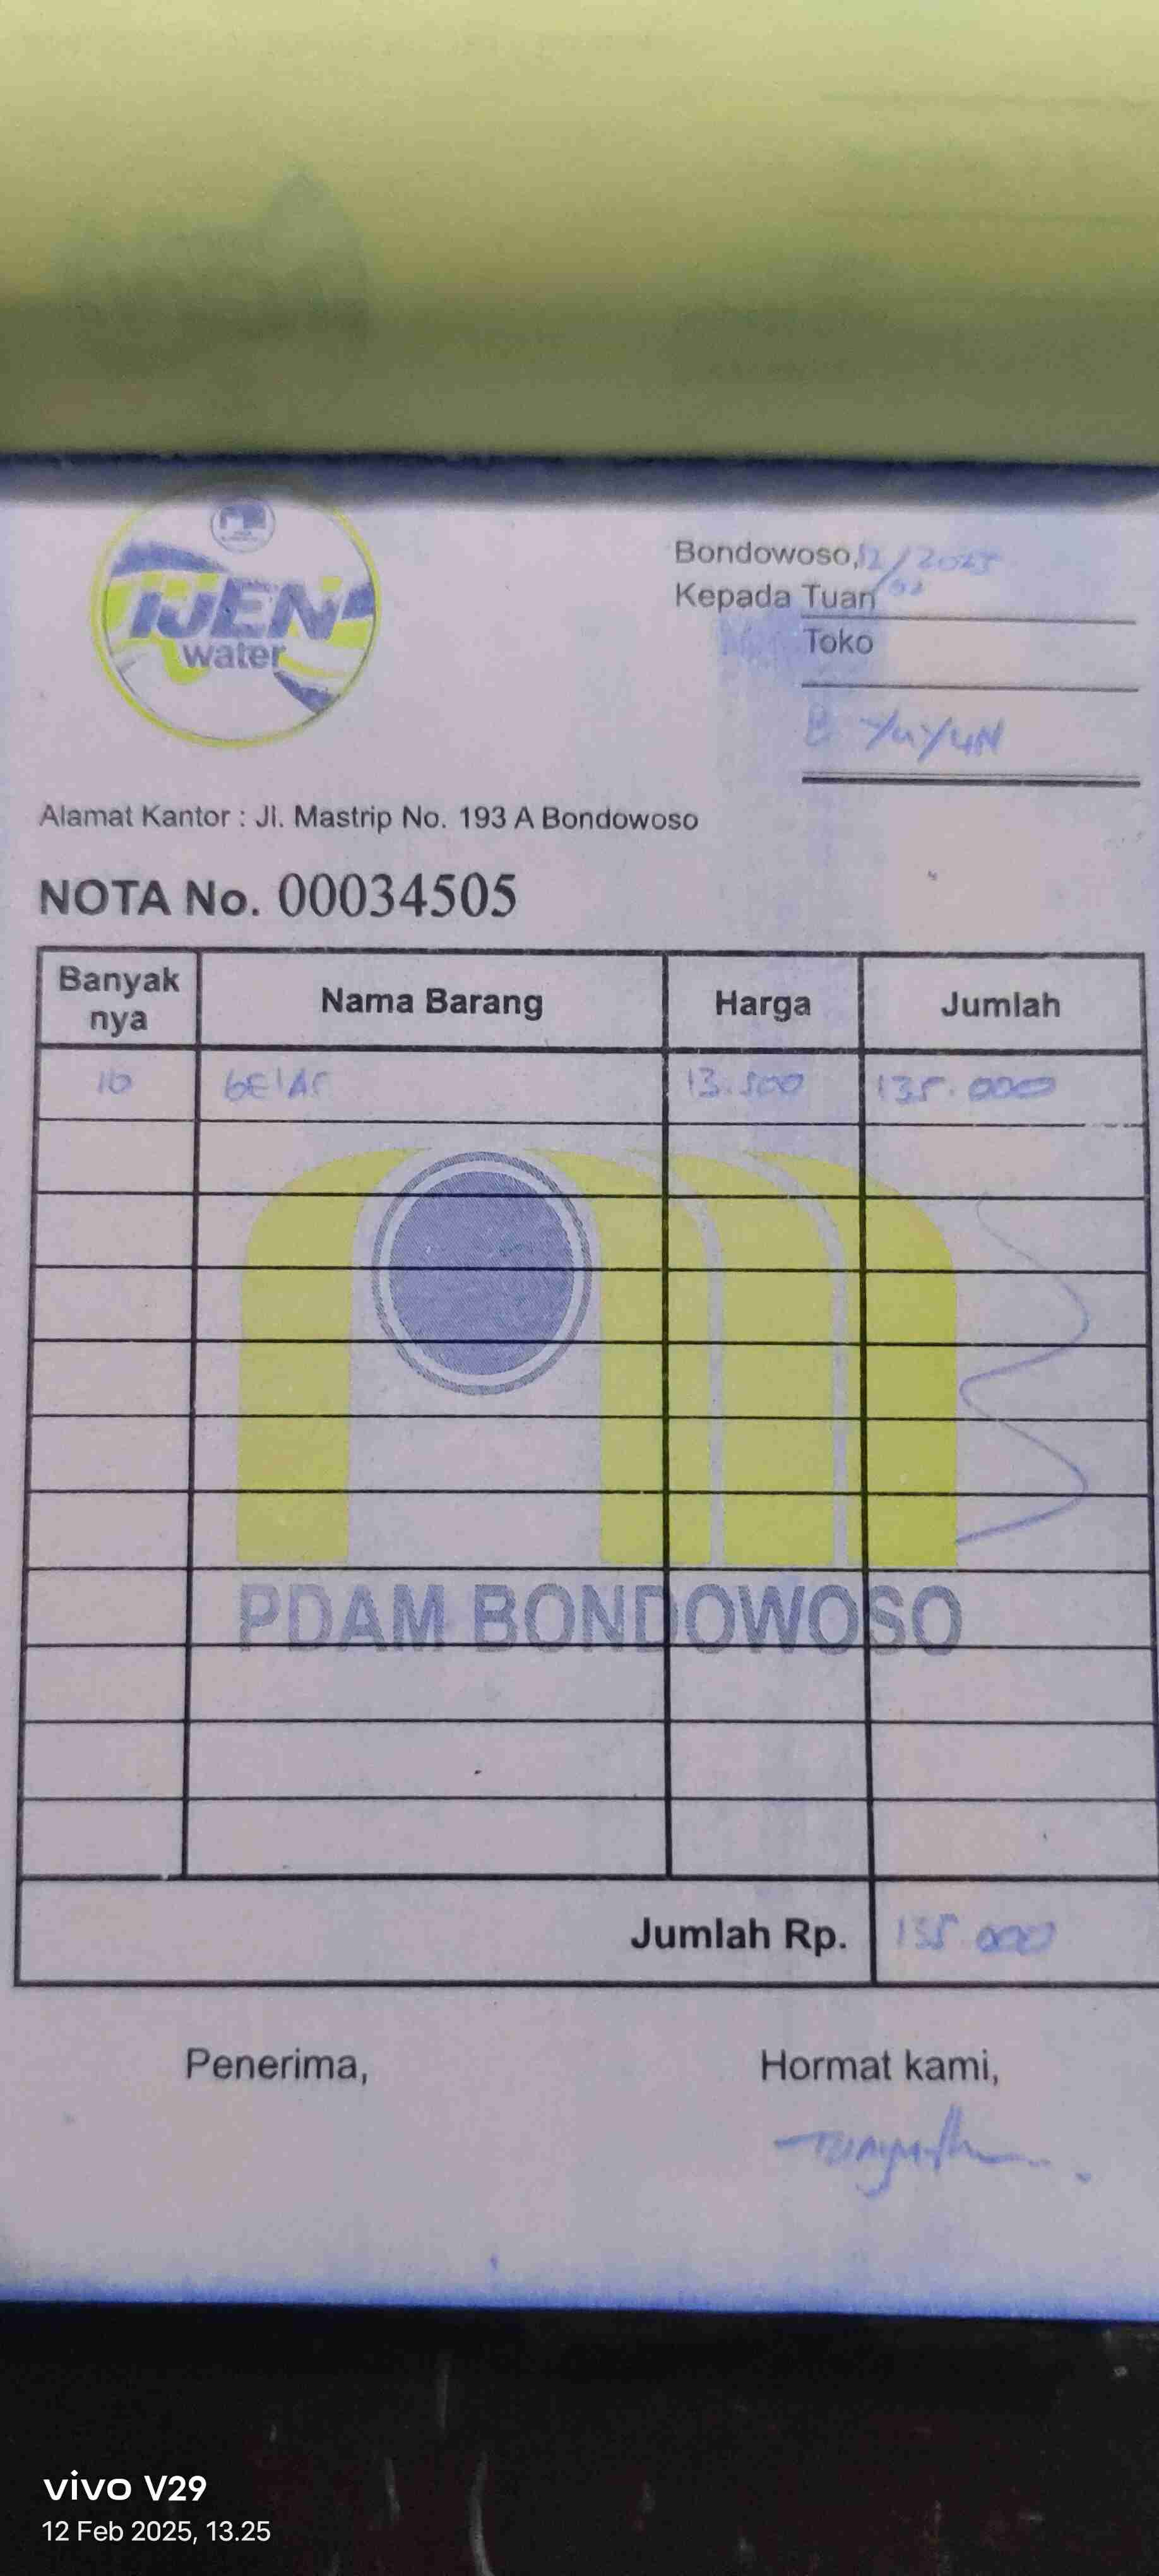 IJEN
water
Bondowoso, 12/02 2025
Kepada Tuan
Toko
B YUYUN
Alamat Kantor : Jl. Mastrip No. 193 A Bondowoso
NOTA No. 00034505
Banyak nya Nama Barang Harga Jumlah
10 GElAS 13.500 135.000
PDAM BONDOWOSO
Jumlah Rp. 135.000
Penerima, Hormat kami,
vivo V29
12 Feb 2025, 13.25